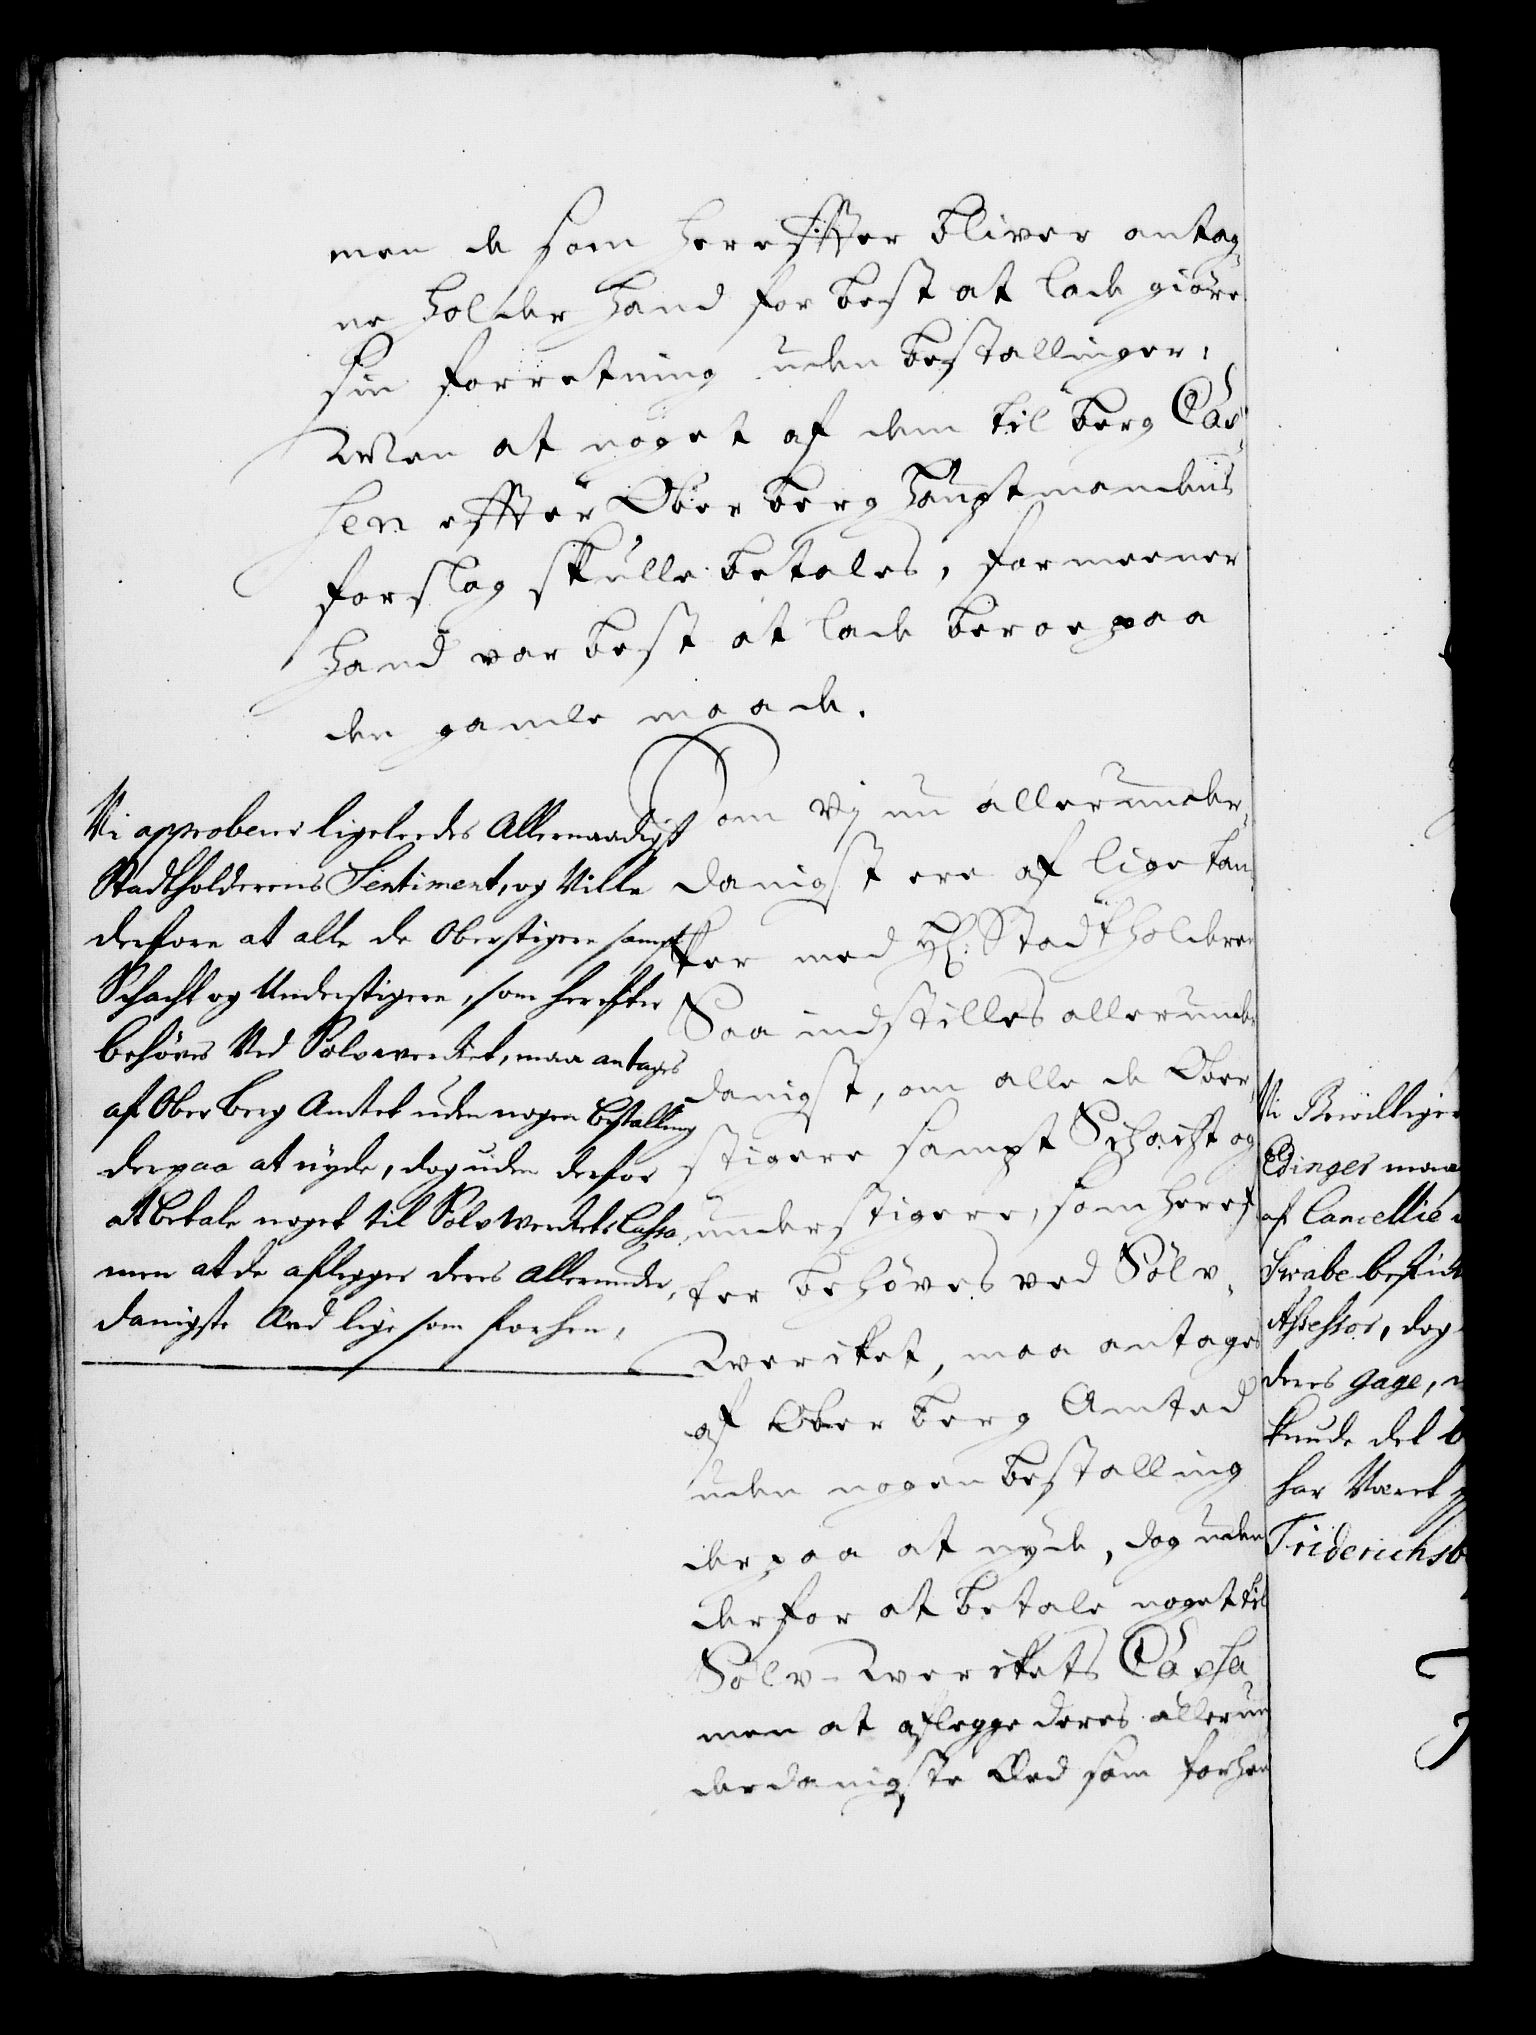 men de som herefter bliver antag-
ne holder hand for best at lade giöre
sin forretning uden bestallinger,
Men at noget af dem til berg Cas-
sen efter Ober berg hauptmandens
forslag skulle betales, formeener
hand var best at lade beroe paa
den gamle maade.
Som vj nu allerunder-
danigst ere af lige tan-
ker med H: Stadtholderen
Saa indstilles allerunder
danigst, om alle de Ober-
stigere sampt Schacht og
understigere, som heref-
ter behöves ved Sölv-
wercket, maa antages
af Ober berg Amted
uden nogen bestalling
derpaa at nyde, dog uden
derfor at betale noget til
Sölv-werckets Cassa
men at aflegge deres allerun
derdanigste Eed som forhen
Vi approberer ligeleedes Allernaadigst
Stadtholderens Sentiment, og Ville
derfore at alle de Oberstigere sampt
Schacht og Understigere, som herefter
behöves Ved Sölvwercket, maa antages
af Ober Berg Amtet uden nogen bestalling
derpaa at nyde, dog uden derfor
at betale noget til Sölvwerckets Cassa,
men at de aflegger deres allerunder-
danigste Eed lige som forhen,
Vi Bevilliger
Edinger maa
af Cancellie
Swabe
Assessor, dog
deres gage,
kunde det
har Været
Friderichsb